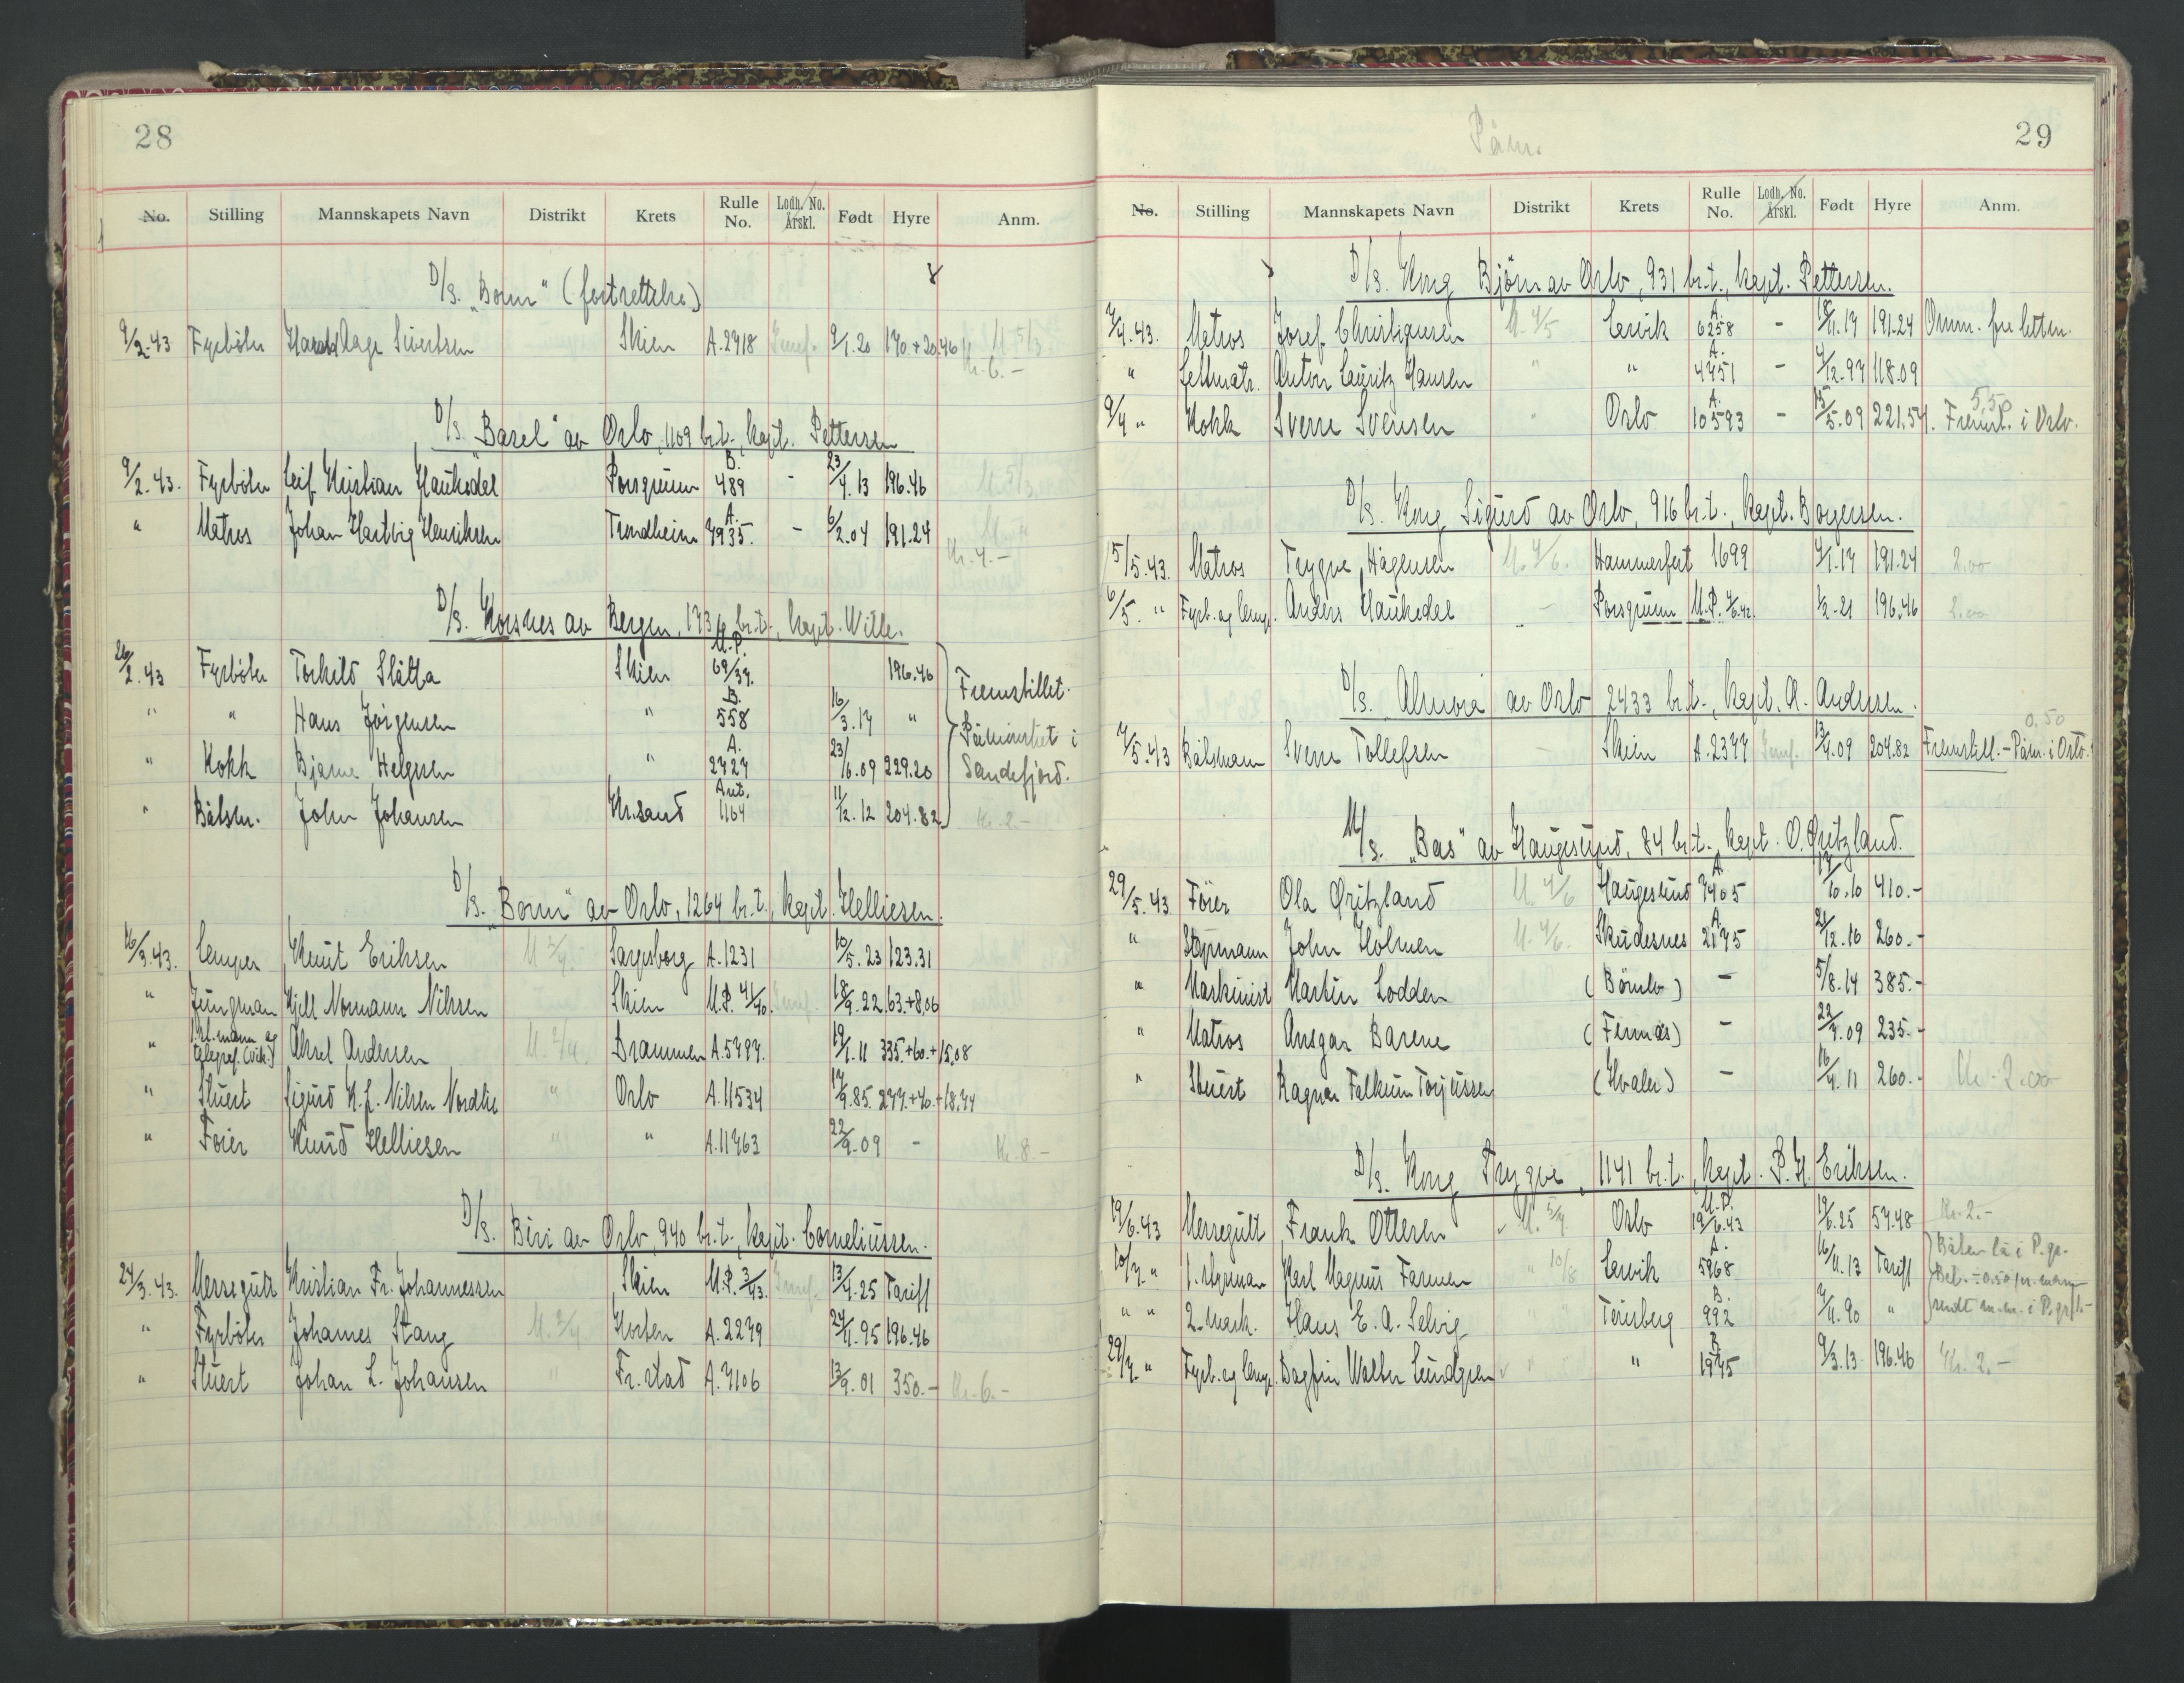 28
No. Stilling Mannskapets Navn Distrikt Krets Rulle No. Lodh. No. Årskl. Født Hyre Anm.
D/S. „Borun" (fortsettelse)
9/2.43 Fyrbøter Harald Aage Sivertsen Skien A.2718 9/1.20 170.+20.46 Kr. 6.-
D/S. „Basel" av Oslo, 1109 br.t., kapt. Pettersen
9/2.43. Fyrbøter Leif Kristian Haukedal Porsgrunn B. 489 - 23/4.13 196.46
" Matros Johan Hartvig Henriksen Trondheim A. 4935. - 6/2.04 191.24 Kr. 4.-
D/S. Korsnes av Bergen, br.t., kapt. Wille.
26/2.43 Fyrbøter Torkild Slåtta Skien M.P. 69/37. 196.46 Fremstillet.
" " Hans Jørgensen " B. 558 16/3.17 " Påmønstret i
" Kokk Bjarne Helgesen " A. 2727 23/6.09 229.20 Sandefjord.
" Båtsm. John Johansen Kr.sand Aut. 1164 11/12.12 204.82 Kr. 2.-
D/S. „Borun" av Oslo, 1264 br.t., kapt. Helliesen.
16/3.43. Lemper Knut Eriksen Sarpsborg A.1231 10/5.23 123.31
" Jungman Kjell Normann Nilsen Skien M.P. 18/9.22 63.+8.06
" telegraf. (vik.) Aksel Andersen Drammen A.5797. 19/1.11 335.+60.+15.08
" Stuert Sigurd K.L. Nilsen Nordlie " Oslo A.11534 17/9.85. 277.+40.+18.74
" Fører Knud Helliesen " " A.11763 22/9.09 - Kr. 8.-
D/S. Biri av Oslo, 940 br.t., kapt. Corneliussen.
24/3.43. Messegutt Kristian Fr. Johannessen Skien M.P. 3/43. 13/4.25 Tariff
" Fyrbøter Johannes Stang Horten A.2279 24/1.95 196.46
" Stuert Johan L. Johansen " Fr.stad A.7106 13/9.01 350.- Kr. 6.-
29
Påm.
No. Stilling Mannskapets Navn Distrikt Krets Rulle No. Lodh. No. Årskl. Født Hyre Anm.
D/S. Kong Bjørn av Oslo, 931 br.t., kapt. Pettersen.
7/4.43. Matros Josef Christiansen M. 4/5 Lervik A. 6258 - 18/11.17 191.24 Omm. fra lettm.
" Lettmatr. Anton Lauritz Hansen " " A. 4751 - 4/12.97 118.09
9/4 " Kokk Sverre Svensen " Oslo A. 10593 - 15/5.09 221.54. Fremst. i Oslo.
D/S. Kong Sigurd av Oslo, 916 br.t., kapt. Boyersen.
5/5.43. Matros Trygve Hågensen M. 4/6. Hammerfest 1699 4/1.17 191.24 2.00
6/5. " Fyrb. og lemp. Anders Haukedal - Porsgrunn M.P. 4/6.42. 1/2.21 196.46 2.00
D/S. Almora av Oslo 2433 br.t., kapt. A. Andersen.
0.50
7/5.43 Båtsmann Sverre Tollefsen - Skien A.2377 13/4.09 204.82 Fremstill. - Påm. i Oslo.
M/S. „Bas" av Haugesund, 84 br.t., kapt. O. Øritzland.
29/5.43 Fører Ola Øritzland M. 4/6 Haugesund A 7405 17/10.10 410.-
" Styrmann John Holmen M. 4/6. Skudesnes A 2175 21/12.16 260.-
" Maskinist Martin Lodden (Bømlo) - 5/8.14 385.-
" Matros Ansgar Barene (Fernæs) - 22/4.09 235.-
" Stuert Ragnar Falkum Torjussen (Hvaler) - 16/4.11 260.- Kr. 2.00
D/S. Kong Trygve, 1141 br.t., kapt. P.H. Eriksen.
19/6.43 Messegutt Frank Ottesen Oslo M.P. 19/6.43 19/6.25 57.48 Kr. 2.-
10/7. " 1. styrman Karl Magnus Farmen " 10/8 Lervik A. 5968 16/11.13 Tariff Båten lå i P.gr.
" " 2. mask. Hans E. A. Selvig " Tønsberg B. 992 7/11.90 " sendt m.m. i P.gr.
29/7. " Fyrb. og lemp. Dagfin Walter Lundgren " " B 1975 9/3.13 196.46 Kr. 2.-